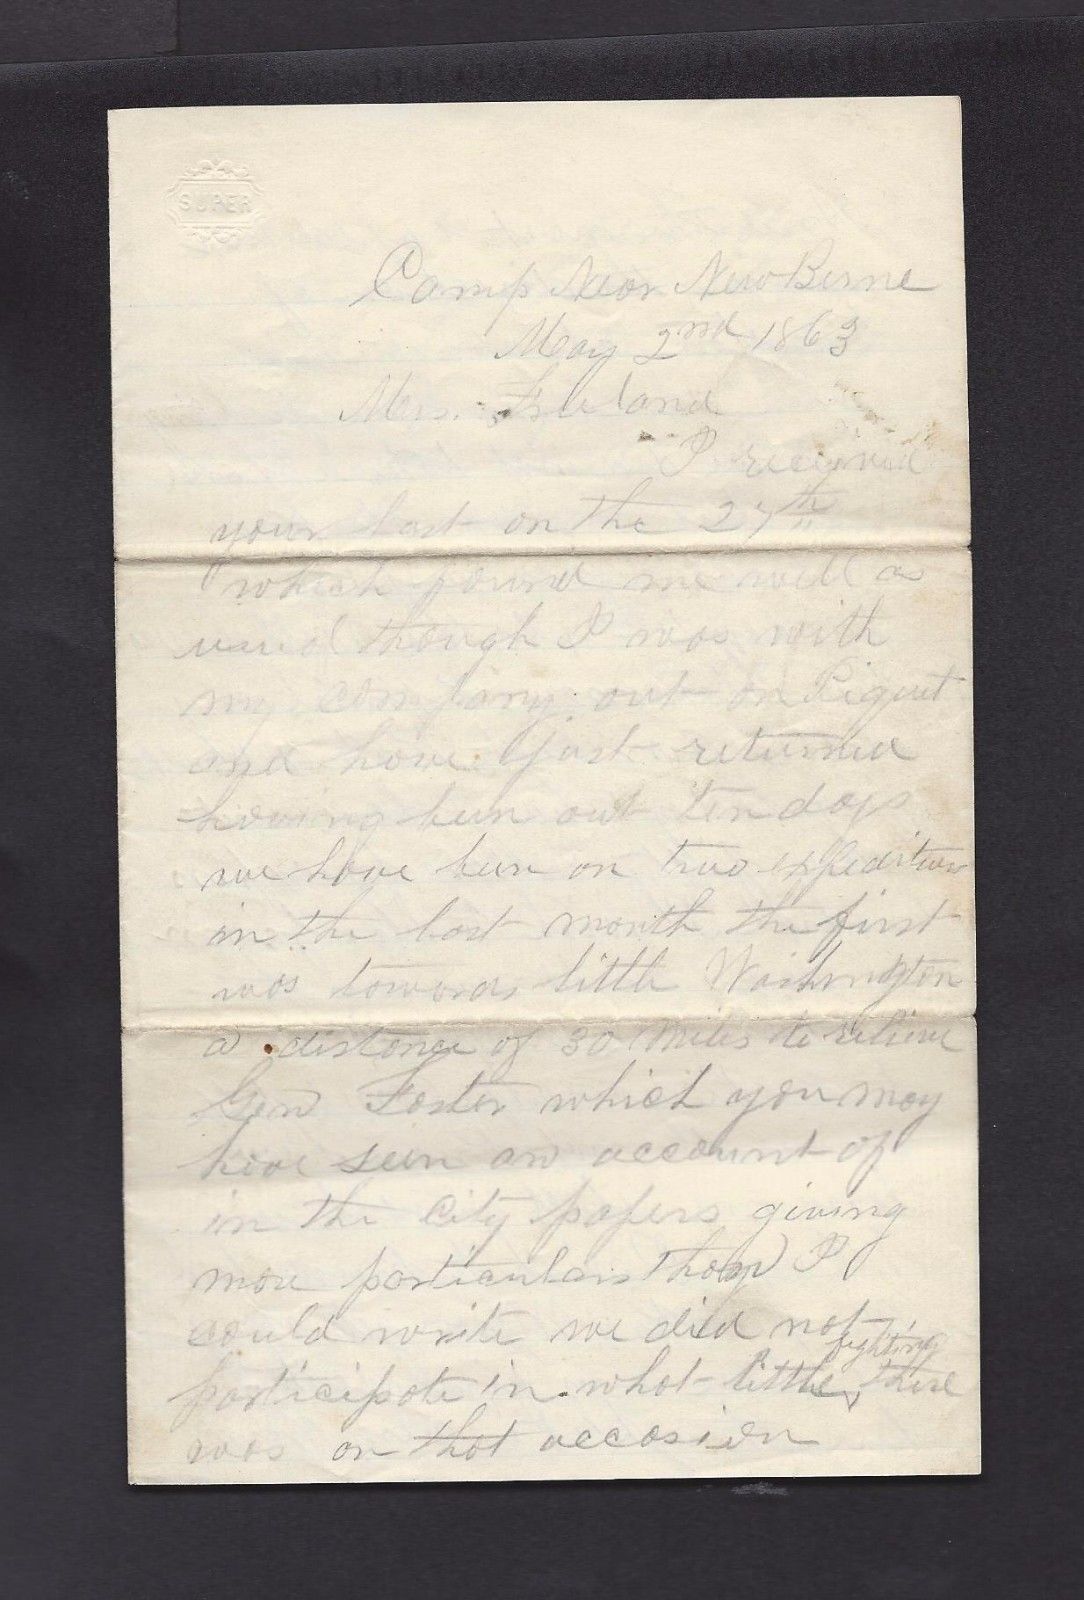 SUPER
Camp Near New Berne
May 2nd 1863
Mrs. Freeland
I received
your last on the 27th
which found me well as
usual though I was with
my company out on Piquet
and have just returned
having been out ten days
we have been on two expeditions
in the last month the first
was towards little Washington
a distance of 30 miles to relieve
Gen Foster which you may
have seen an account of
in the City papers giving
more particulars than I
could write we did not
participate in what little fighting there
was on that occasion